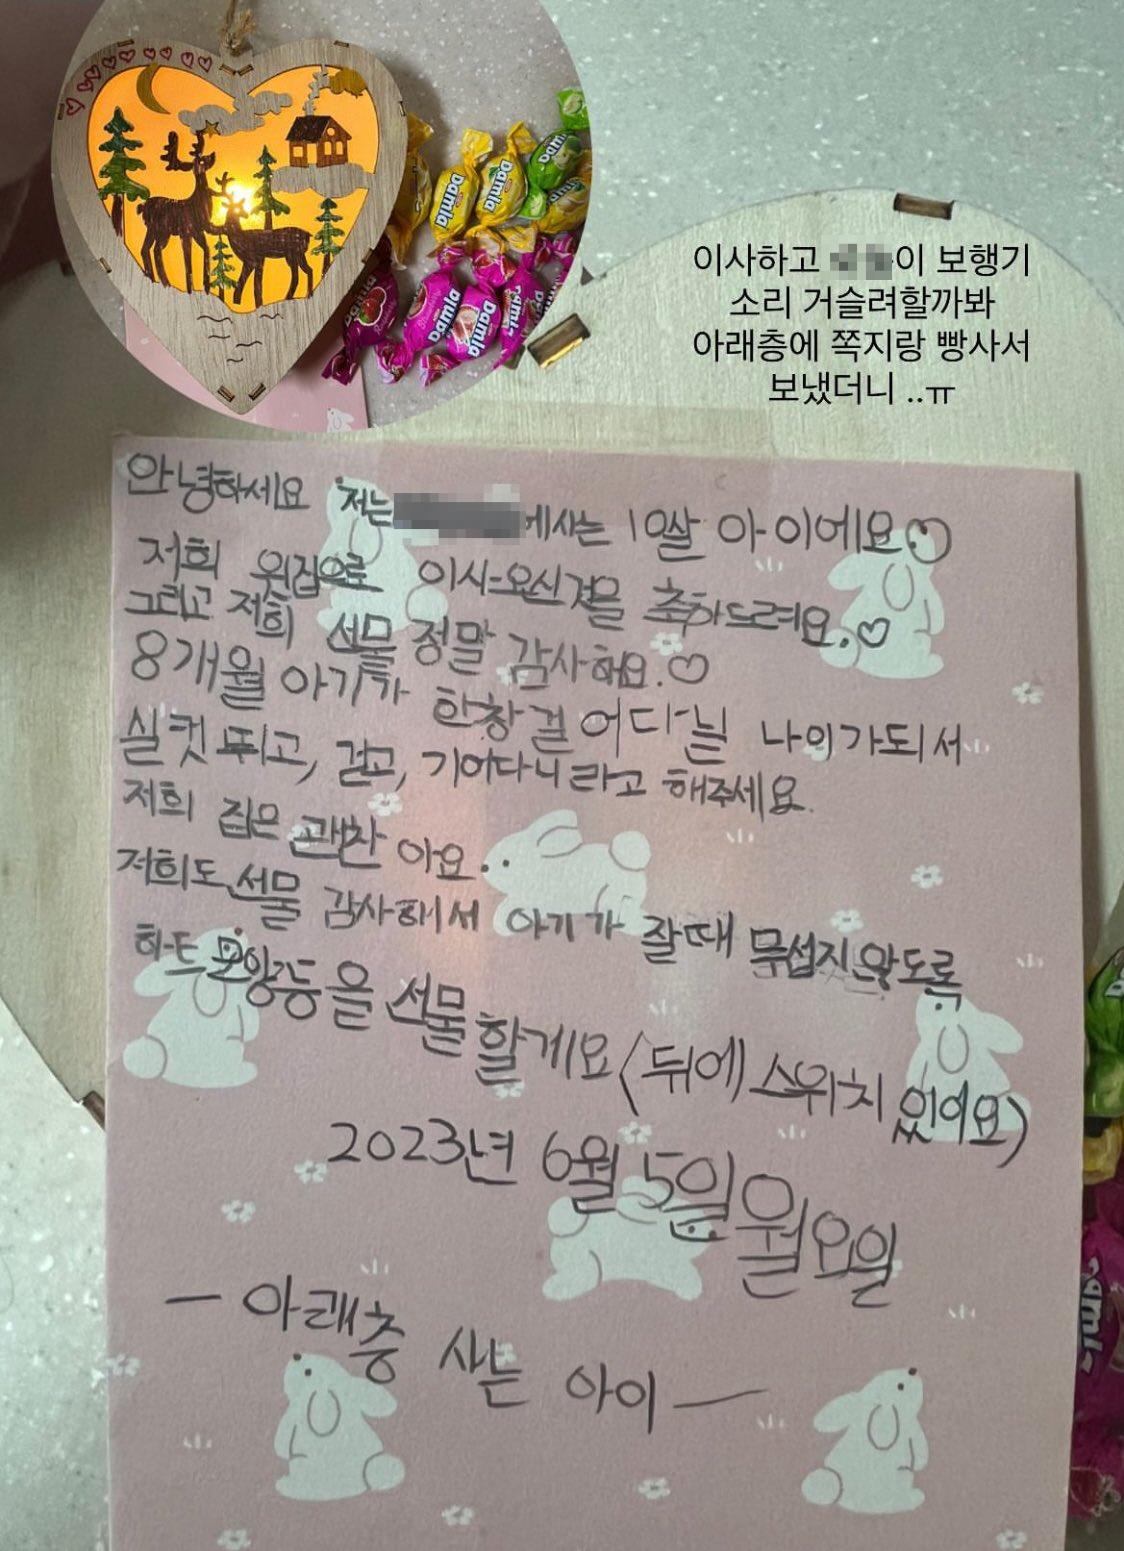 이사하고 이 보행기
소리 거슬려할까봐
아래층에 쪽지랑 빵사서
보냈더니 ..ㅠ
Damla
Damla
Damla
Damla
Damla
안녕하세요 저는 에사는 10쌀 아이에요
저희 윗집으로 이사오신걸을 축하드려요.♡
그리고 저희 선물 정말 감사해요.♡
8개월 아기가 한창 걸어다닐 나이가되서
실컷 뛰고, 걷고, 기어다니라고 해주세요.
저희 집은 괜찬아요.
저희도 선물 감사해서 아기가 잘때 무섭지 않도록
하트모양등을 선물할게요 (뒤에 스위치 있어요)
2023년 6월 5일 월요일
— 아래층 사는 아이 —